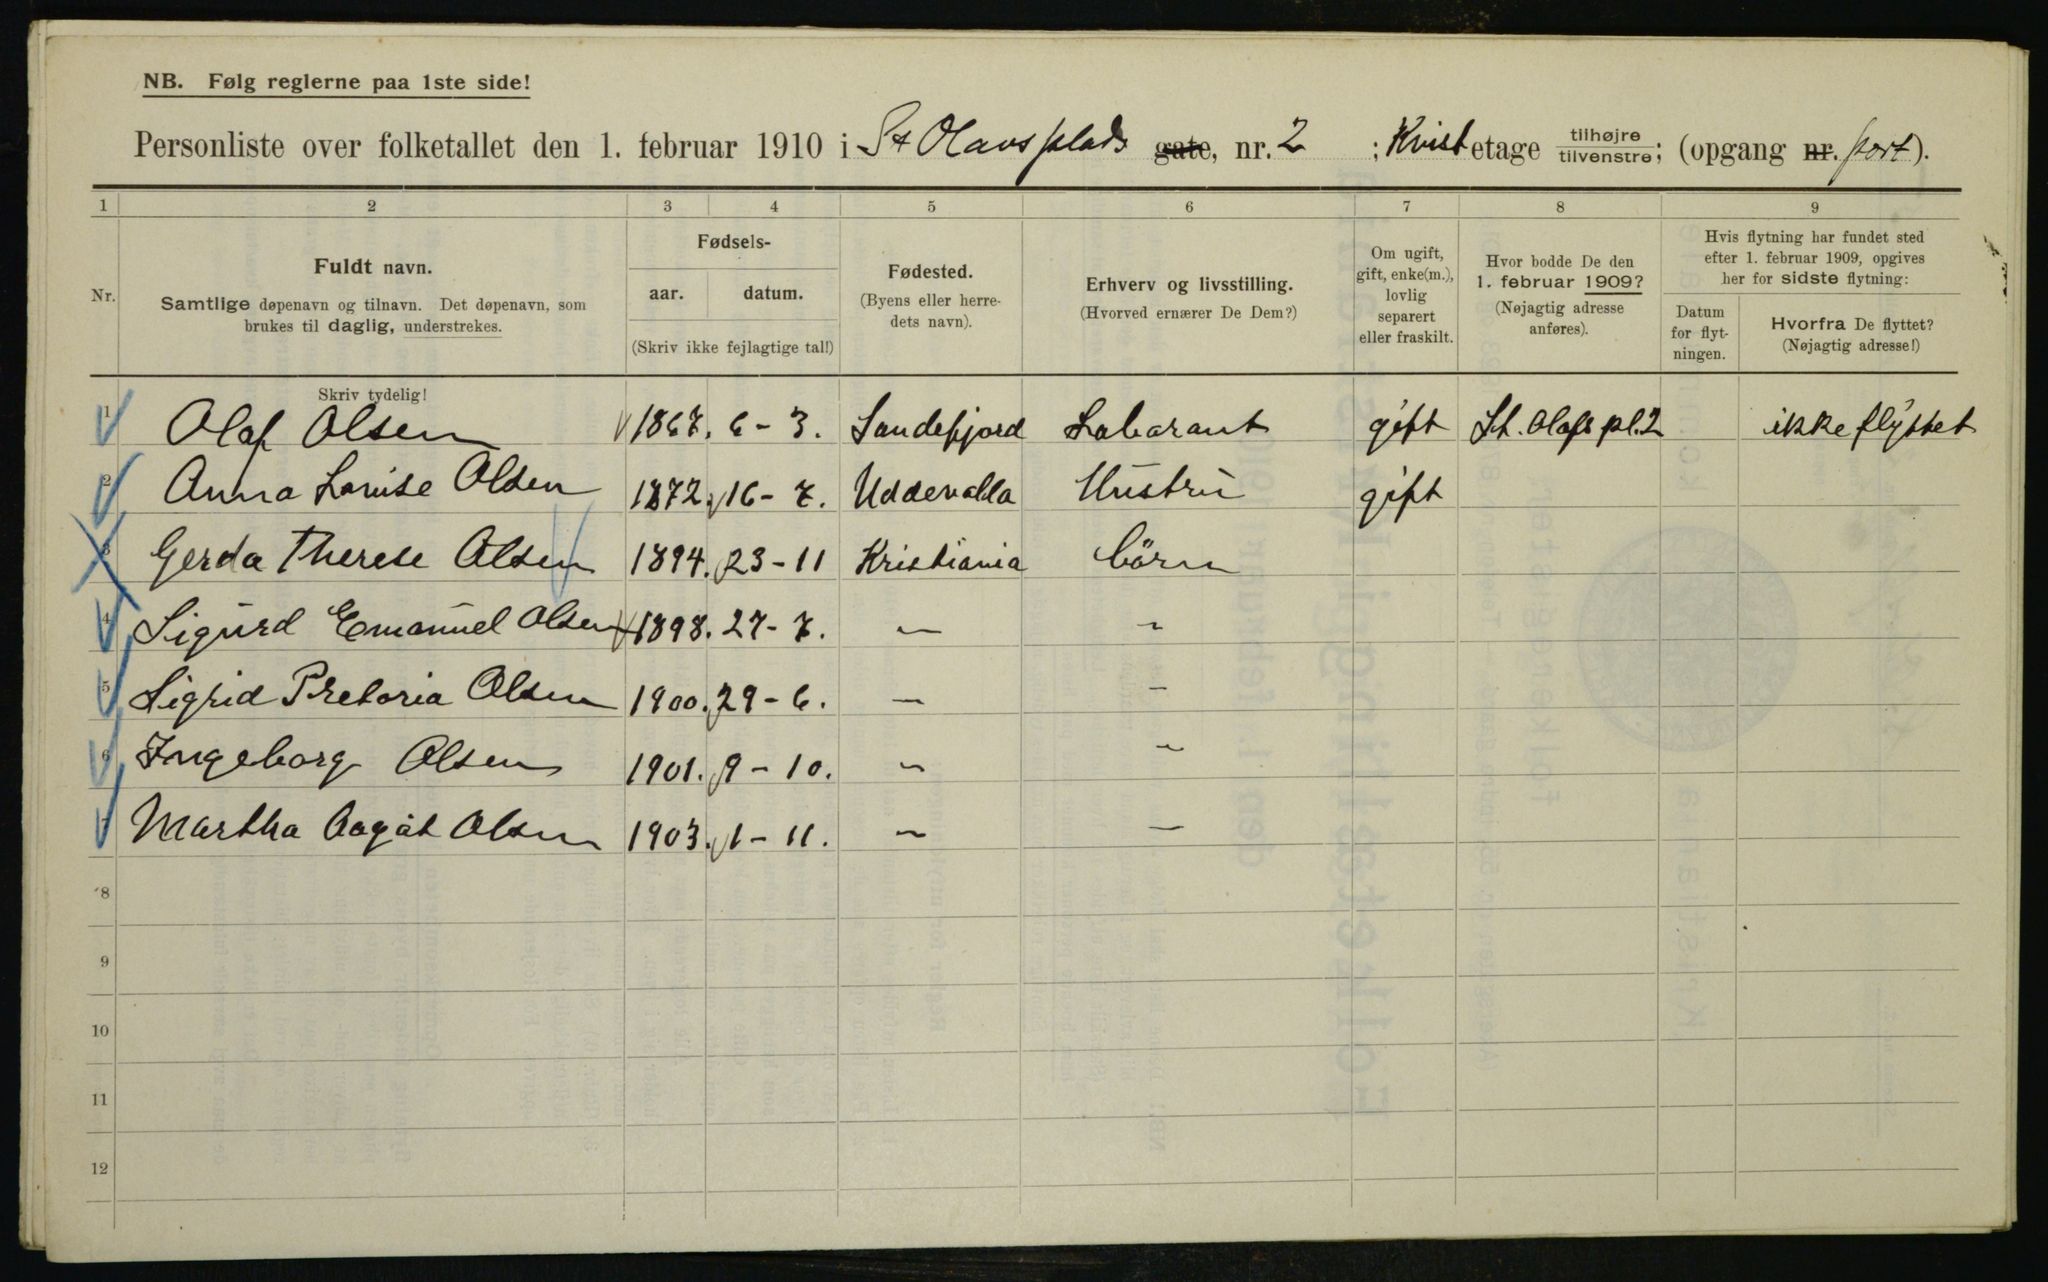 NB. Følg reglerne paa 1ste side!
Personliste over folketallet den 1. februar 1910 i St Olavsplads gate, nr. 2 ; Kvist etage tilhøjre tilvenstre; (opgang nr. port).
1 2 3 4 5 6 7 8 9
Nr.
Fuldt navn.
Samtlige døpenavn og tilnavn. Det døpenavn, som
brukes til daglig, understrekes.
Fødsels-
aar. datum.
(Skriv ikke fejlagtige tal!)
Fødested.
(Byens eller herre-
dets navn).
Erhverv og livsstilling.
(Hvorved ernærer De Dem?)
Om ugift,
gift, enke(m.),
lovlig
separert
eller fraskilt.
Hvor bodde De den
1. februar 1909?
(Nøjagtig adresse
anføres).
Hvis flytning har fundet sted
efter 1. februar 1909, opgives
her for sidste flytning:
Datum
for flyt-
ningen.
Hvorfra De flyttet?
(Nøjagtig adresse!)
Skriv tydelig!
1 Olaf Olsen 1867. 6 - 3. Sandefjord Laborant gift St. Olafs pl. 2 ikke flyttet
2 Anna Lovise Olsen 1872. 16 - 7. Uddevalla Hustru gift
3 Gerda Therese Olsen 1894. 23 - 11 Kristiania börn
4 Sigurd Emanuel Olsen 1898. 27 - 7. — "
5 Sigrid Pretoria Olsen 1900. 29 - 6. — —
6 Ingeborg Olsen 1901. 9 - 10. " "
7 Martha Aagåt Olsen 1903. 1 - 11. — —
8
9
10
11
12